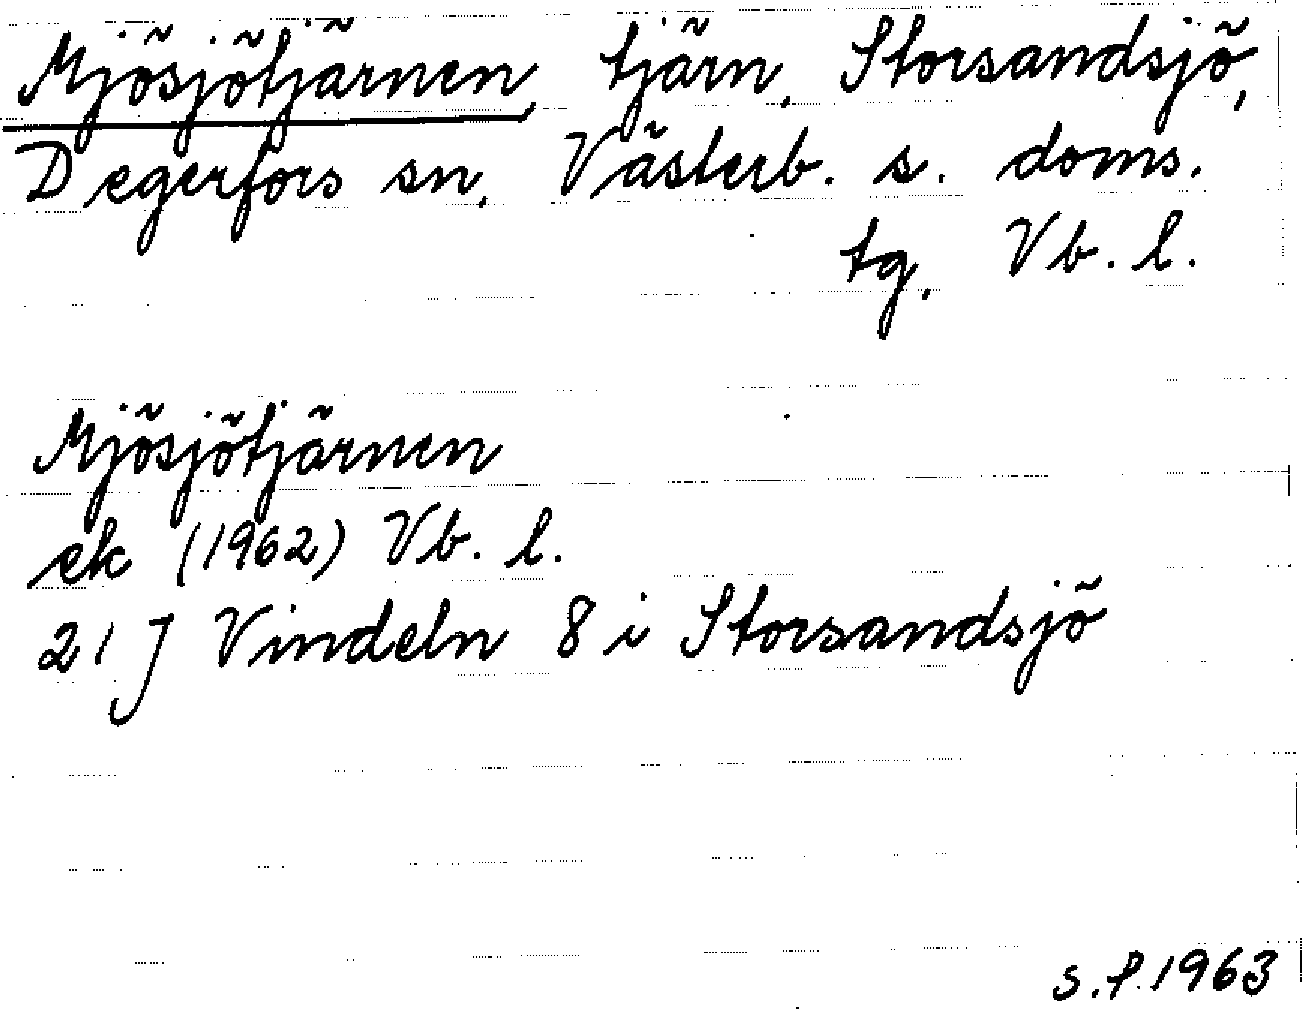 Mjösjötjärnen, tjärn, Storsandsjö,
Degerfors sn, Västerb. s. doms.
tg, Vb. l.
Mjösjötjärnen
ek (1962) Vb. l.
21 J Vindeln 8 i Storsandsjö
s.f. 1963